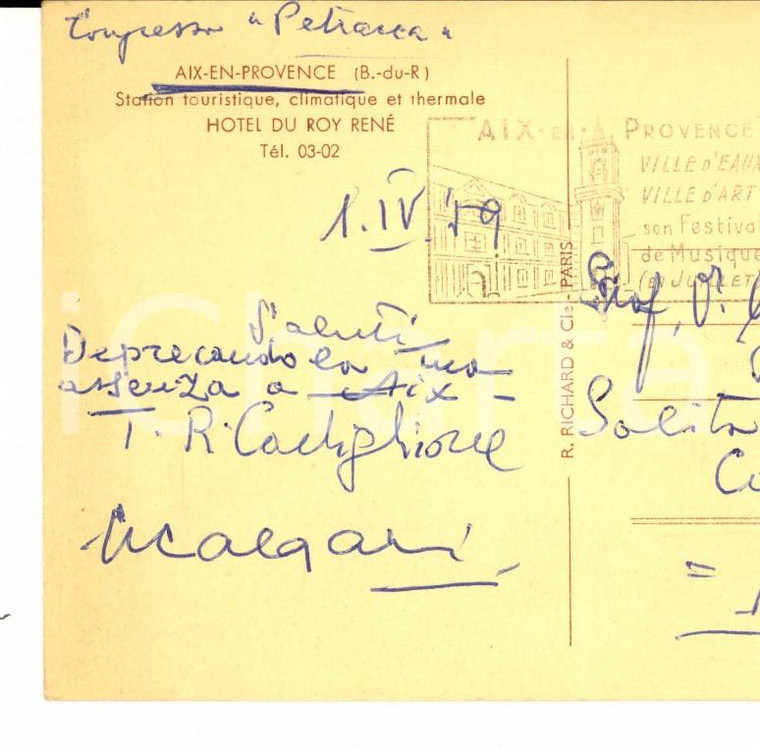 Congresso "Petrarca"
AIX-EN-PROVENCE (B.-du-R)
Station touristique, climatique et thermale
HOTEL DU ROY RENÉ
Tél. 03-02
1.IV.'59
Saluti
Deprecando la sua
assenza a Aix -
T. R. Castiglione
AIX-en-PROVENCE
VILLE d'EAUX
VILLE d'ART
son Festival
de Musique
(en JUILLET
R. RICHARD & Cie - PARIS
Prof. Dr.
Salita
iCharta